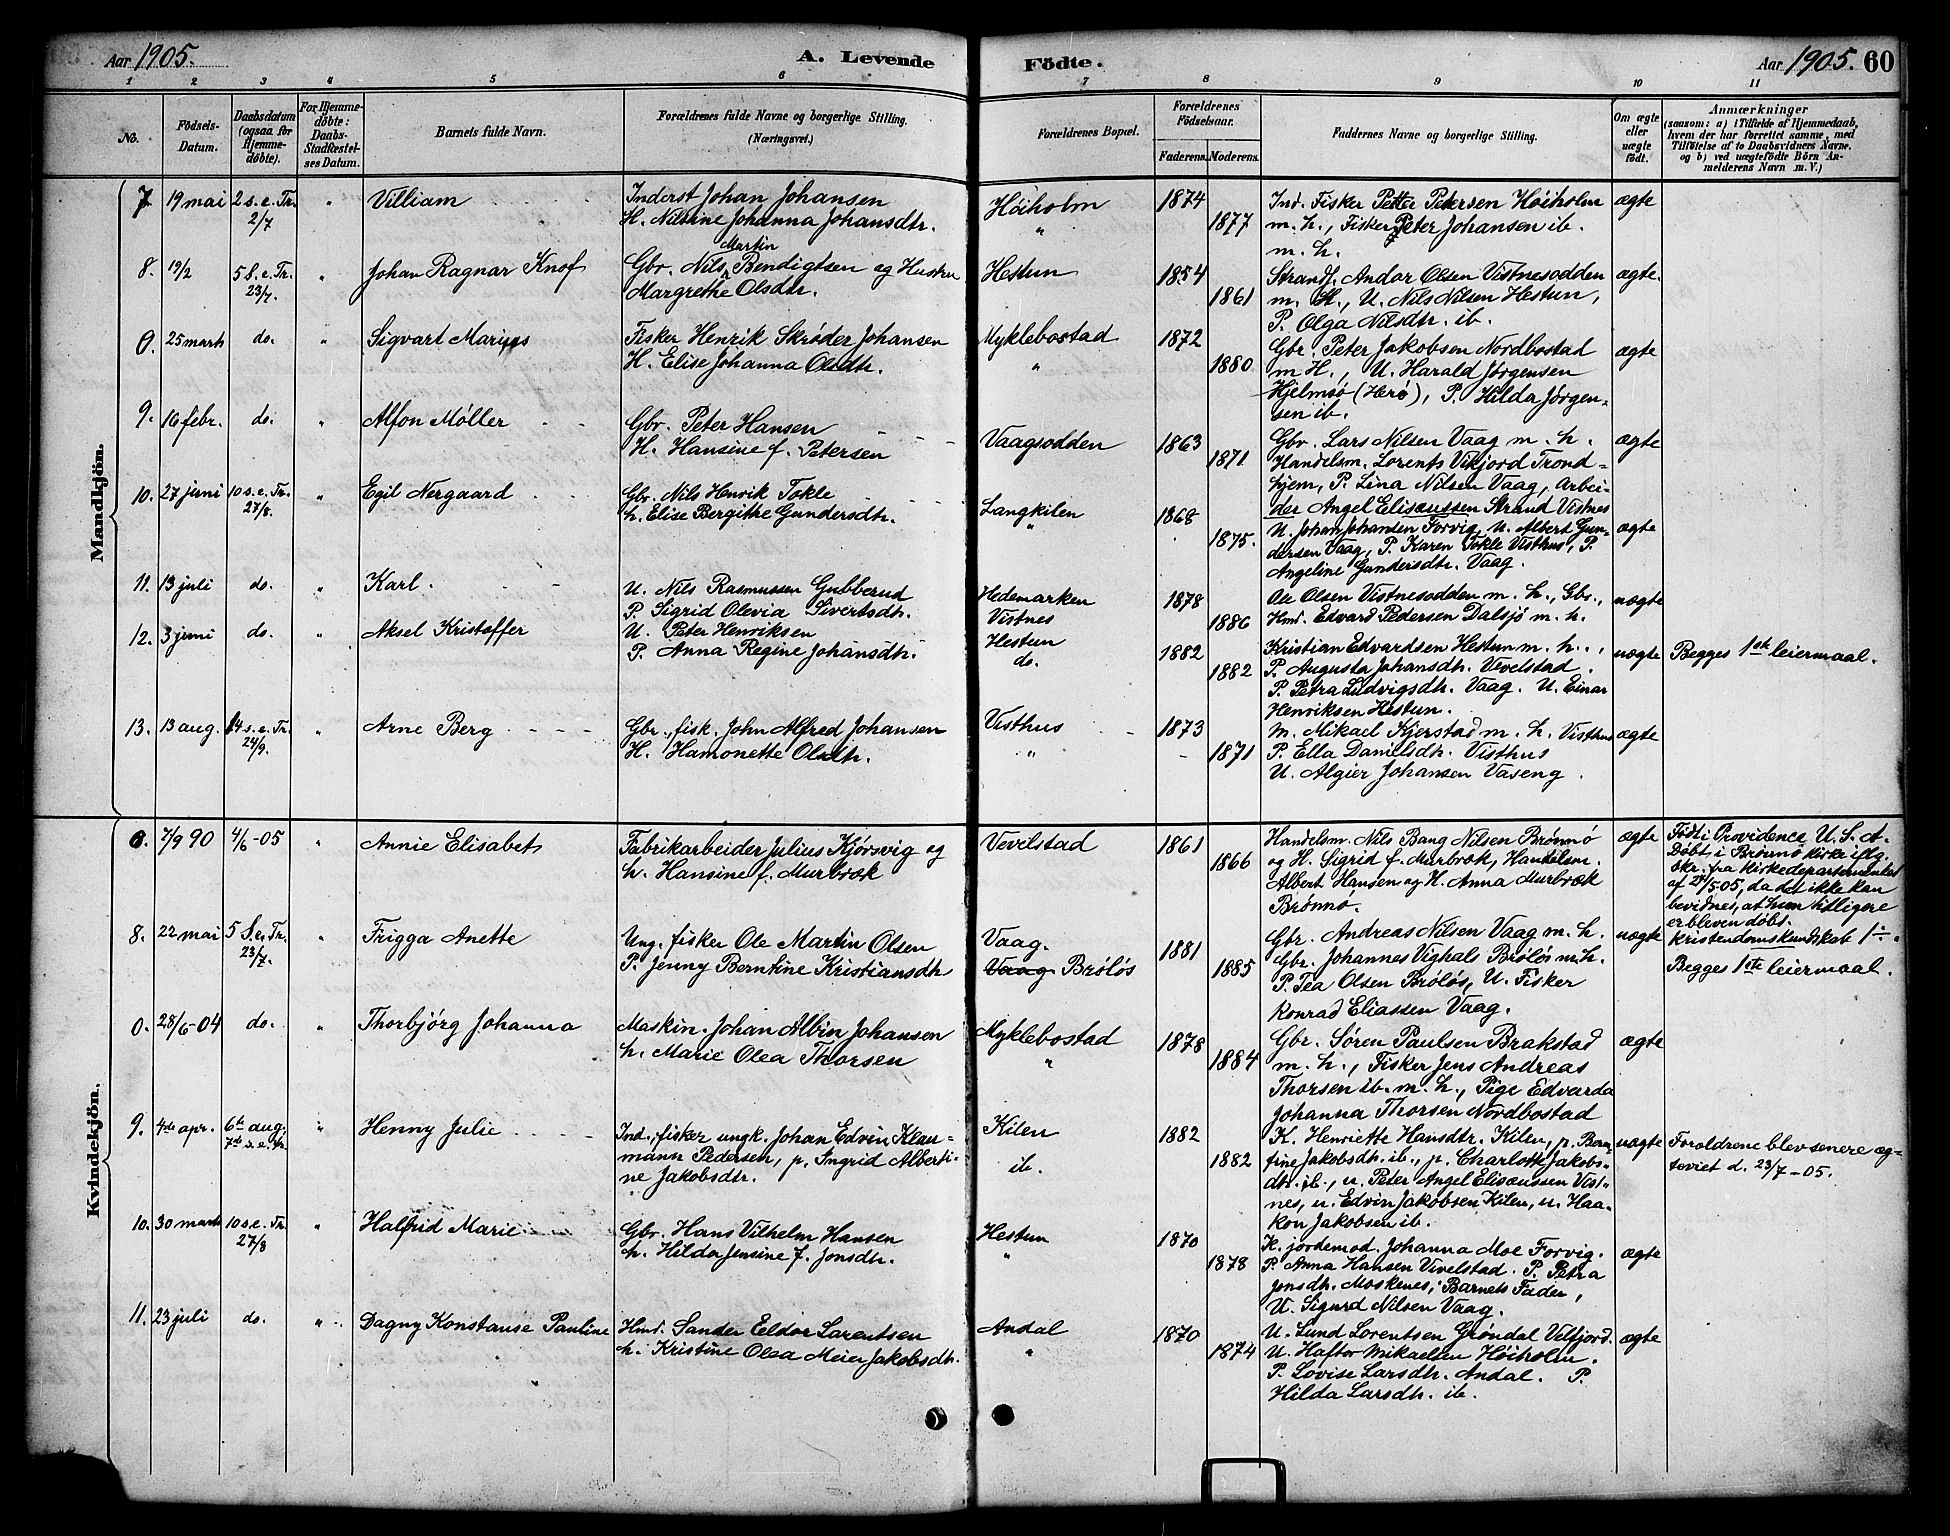 Aar 1905.
A. Levende Födte.
Aar 1905. 60
1 2 3 4 5 6 7 8 9 10 11
No.
Födsels-Datum.
Daabsdatum (ogsaa for Hjemmedöbte).
For Hjemmedöbte: Daabs-Stadfæstelses Datum.
Barnets fulde Navn.
Forældrenes fulde Navne og borgerlige Stilling. (Næringsvei.)
Forældrenes Bopæl.
Forældrenes Födselsaar.
Faderens. Moderens.
Faddernes Navne og borgerlige Stilling.
Om ægte eller uægte födt.
Anmærkninger
(saasom: a) i Tilfælde af Hjemmedaab, hvem der har forrettet samme, med Tilföielse af to Daabsvidners Navne, og b) ved uægtefödte Börn Anmelderens Navn m. V.)
Mandkjön.
7 19 mai 2 s. e. Tr. 2/7 " Villiam
Inderst Johan Johansen
H. Nilsine Johanna Johansdtr.
Høiholm "
1874 1877
Ind. Fisker Petter Petersen Høiholm
m. h., Fisker Peter Johansen ib.
m. h.
ægte
8. 19/2 5 S. e. Tr. 23/7. " Johan Ragnar Knof
Gbr. Nils Martin Bendigtsen og Hustru
Margrethe Olsdtr.
Hestun
1854 1861
Strands. Andor Olsen Vistnesodden
m. H., U. Nils Nilsen Hestun,
P. Olga Nilsdtr. ib.
ægte.
0. 25 marts do. " Sigvart Marius
Fisker Henrik Skrøder Johansen
H. Elise Johanna Olsdtr.
Myklebostad "
1872 1880
Gbr. Peter Jakobsen Nordbostad
m H., U. Harald Jørgensen
Hjelmsø (Herø), P. Hilda Jørgen-
sen ib.
ægte
9. 16 febr. do. " Alfon Møller
Gbr. Peter Hansen
H. Hansine f. Petersen
Vaagsodden
1863 1871
Gbr. Lars Nilsen Vaag m. h.
Handelsm. Lorents Vikjord Trond-
hjem, P. Lina Nilsen Vaag, Arbei-
der Angel Elisæussen Strand Vistnes
ægte
10. 27 juni 10 s. e. Tr. 27/8. " Egil Nergaard
Gbr. Nils Henrik Tokle
h. Elise Bergithe Gundersdtr.
Langkilen "
1868 1875.
U. Johan Johansen Forvig, U. Albert Gun-
dersen Vaag, P. Karen Tokle Visthus, P.
Angeline Gundersdtr. Vaag.
ægte
11. 13 juli do. " Karl.
U. Nils Rasmussen Gubberud
P. Sigrid Olevia Sivertsdtr.
Hedemarken
Vistnes
1878 1886
Ole Olsen Vistnesodden m. h., Gbr.,
Kmd. Edvard Pedersen Dalsjø m. h.
uægte
12. 3 juni do. " Aksel Kristoffer
U. Peter Henriksen
P. Anna Regine Johansdtr.
Hestun
do.
1882 1882
Kristian Edvardsen Hestun m. h.,
P. Augusta Johansdtr. Vevelstad.
P. Petra Ludvigsdtr. Vaag. U. Einar
Henriksen Hestun.
uægte
Begges 1ste leiermaal.
13. 13 aug. 14 s. e. Tr. 24/9. " Arne Berg
Gbr., fisk. John Alfred Johansen
H. Hamonette Olsdtr.
Visthus "
1873 1871
M. Mikael Kjerstad m. h. Visthus
P. Ella Danielsdtr. Visthus
U. Algier Johansen Vaseng.
ægte
Kvindekjön.
0. 7/9 90 4/6-05 " Annie Elisabet
Fabrikarbeider Julius Kjørsvig og
h. Hansine f. Murbræk
Vevelstad
1861 1866
Handelsm. Nils Bang Nilsen Brønnø
og H. Sigrid f. Murbræk, Handelsm.
Albert Hansen og H. Anna Murbræk
Brønnø.
ægte
Født i Providence U. S. A.
Døbt i Brønnø kirke iflg.
skr. fra kirkedepartementet
af 27/5-05, da det ikke kan
bevidnes, at hun tidligere
er bleven døbt.
Kristendomskundskab 1÷.
8. 22 mai 5 S. e. Tr. 23/7. " Frigga Anette
Ung. fisker Ole Martin Olsen
P. Jenny Berntine Kristiansdtr
Vaag.
Vaag Brøløs
1881 1885
Gbr. Andreas Nilsen Vaag m. h.
Gbr. Johannes Vighals Brøløs m. h.
P. Tea Olsen Brøløs, U. Fisker
Konrad Eliassen Vaag.
uægte
Begges 1ste leiermaal.
0. 28/6-04 do. " Thorbjörg Johanna
Maskin. Johan Albin Johansen
h. Marie Olea Thorsen
Myklebostad "
1878 1884
Gbr. Søren Paulsen Brakstad
m. h., Fisker Jens Andreas
Thorsen ib. m. h., Pige Edvarda
Johanna Thorsen Nordbostad
ægte
9. 4de apr. 6te aug. 7de s. e. tr. " Henny Julie
Ind., fisker ungk. Johan Edvin Klau-
mann Pedersen, p. Ingrid Alberti-
ne Jakobsdtr.
Kilen
ib.
1882 1882
K. Henriette Hansdtr. Kilen, p. Bern-
tine Jakobsdtr. ib., p. Charlotte Jakobs-
dtr. ib., u. Peter Angel Elisæussen Vist-
nes, u. Edvin Jakobsen Kilen, u. Haa-
kon Jakobsen ib.
uægte
Foroldrene blev senere æg-
teviet d. 23/7-05.
10. 30 marts 10 s. e. Tr. 27/8 " Halfrid Marie
Gbr. Hans Vilhelm Hansen
h. Hilda Jensine f. Jonsdtr.
Hestun "
1870 1878
K. jordemod. Johanna Moe Forvig.
P. Anna Hansen Vivelstad. P. Petra
Jonsdtr. Moskenes, Barnets Fader,
U. Sigurd Nilsen Vaag.
ægte
11. 23 juli do. " Dagny Konstanse Pauline
Hmd. Sander Eeldor Larentsen
h. Kristine Olea Meier Jakobsdtr.
Andal "
1870 1874
U. Lund Lorentsen Grøndal Velfjord.
U. Haftor Mikaelsen Høiholm.
P. Lovise Larsdtr. Andal. P.
Hilda Larsdtr. ib.
ægte